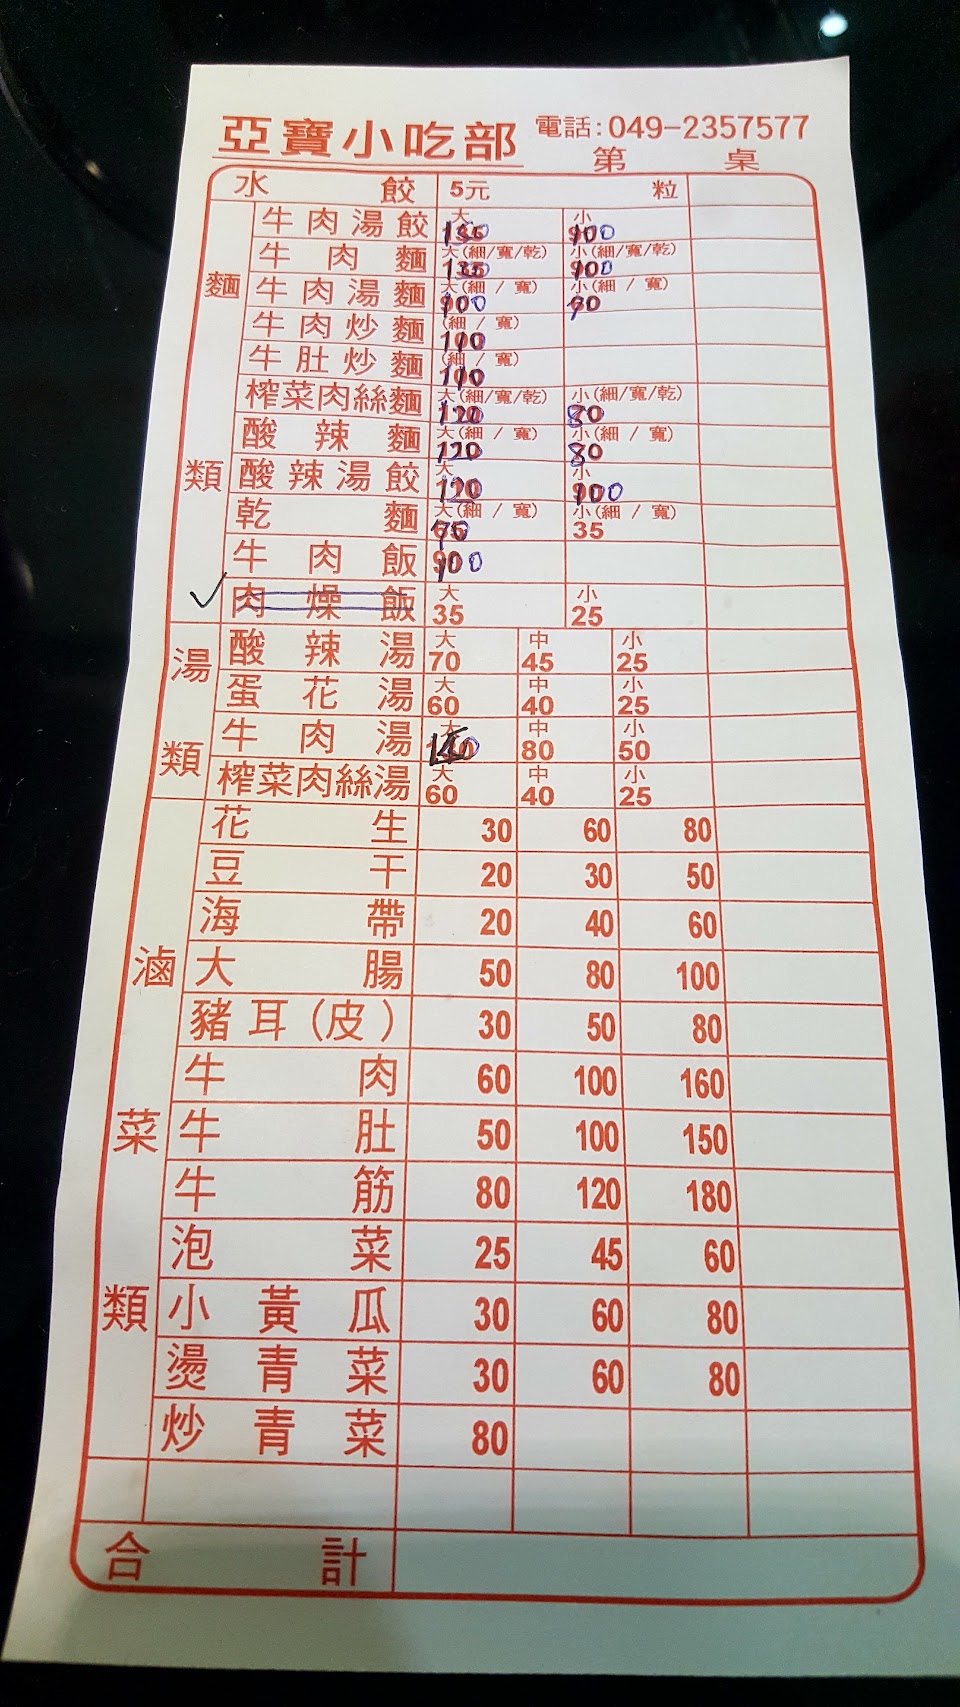 亞寶小吃部 電話:049-2357577
第 桌
水餃 5元 粒
麵類
牛肉湯餃 大 小 100
牛肉麵 大(細/寬/乾) 小(細/寬/乾) 100
牛肉湯麵 大(細/寬) 100 小(細/寬) 90
牛肉炒麵 (細/寬) 110
牛肚炒麵 (細/寬) 110
榨菜肉絲麵 大(細/寬/乾) 120 小(細/寬/乾) 80
酸辣麵 大(細/寬) 120 小(細/寬) 80
酸辣湯餃 大 120 小 100
乾麵 大(細/寬) 70 小(細/寬) 35
牛肉飯 100
肉燥飯 大 35 小 25
湯類
酸辣湯 大 70 中 45 小 25
蛋花湯 大 60 中 40 小 25
牛肉湯 大 中 80 小 50
榨菜肉絲湯 大 60 中 40 小 25
滷菜類
花生 30 60 80
豆干 20 30 50
海帶 20 40 60
大腸 50 80 100
豬耳(皮) 30 50 80
牛肉 60 100 160
牛肚 50 100 150
牛筋 80 120 180
泡菜 25 45 60
小黃瓜 30 60 80
燙青菜 30 60 80
炒青菜 80
合計